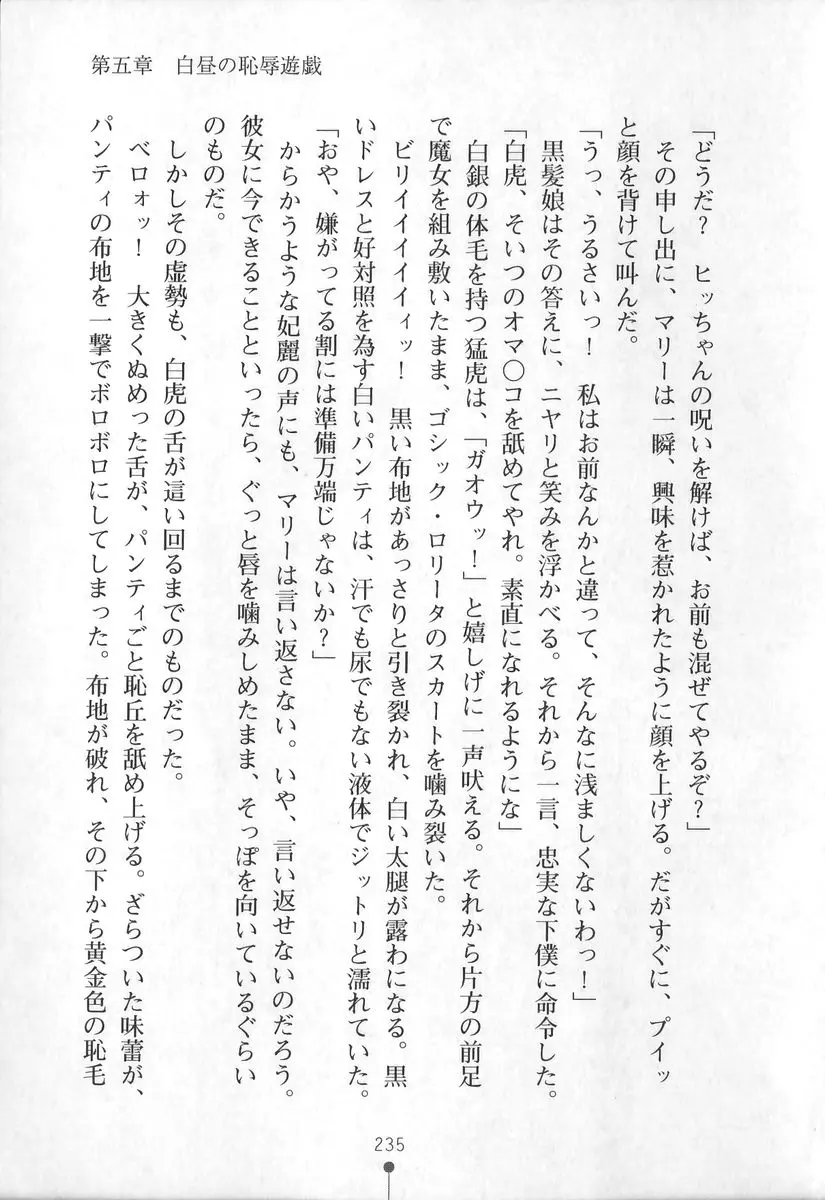 第五章　白昼の恥辱遊戯
「どうだ？　ヒッちゃんの呪いを解けば、お前も混ぜてやるぞ？」
その申し出に、マリーは一瞬、興味を惹かれたように顔を上げる。だがすぐに、プイッ
と顔を背けて叫んだ。
「うっ、うるさいっ！　私はお前なんかと違って、そんなに浅ましくないわっ！」
黒髪娘はその答えに、ニヤリと笑みを浮かべる。それから一言、忠実な下僕に命令した。
「白虎、そいつのオマ〇コを舐めてやれ。素直になれるようにな」
白銀の体毛を持つ猛虎は、「ガオウッ！」と嬉しげに一声吠える。それから片方の前足
で魔女を組み敷いたまま、ゴシック・ロリータのスカートを噛み裂いた。
ビリイイイイイィッ！　黒い布地があっさりと引き裂かれ、白い太腿が露わになる。黒
いドレスと好対照を為す白いパンティは、汗でも尿でもない液体でジットリと濡れていた。
「おや、嫌がってる割には準備万端じゃないか？」
からかうような妃麗の声にも、マリーは言い返さない。いや、言い返せないのだろう。
彼女に今できることといったら、ぐっと唇を噛みしめたまま、そっぽを向いているぐらい
のものだ。
しかしその虚勢も、白虎の舌が這い回るまでのものだった。
ベロォッ！　大きくぬめった舌が、パンティごと恥丘を舐め上げる。ざらついた味蕾が、
パンティの布地を一撃でボロボロにしてしまった。布地が破れ、その下から黄金色の恥毛
235